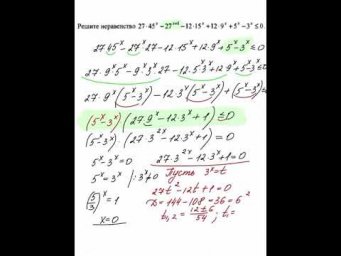 Решите неравенство 27·45ˣ − 27ˣ⁺¹ − 12·15ˣ + 12·9ˣ + 5ˣ − 3ˣ ≤ 0.
27·45ˣ − 27ˣ·27 − 12·15ˣ + 12·9ˣ + 5ˣ − 3ˣ ≤ 0
27·9ˣ·5ˣ − 9ˣ·3ˣ·27 − 12·5ˣ·3ˣ + 12·9ˣ + 5ˣ − 3ˣ ≤ 0
27·9ˣ(5ˣ − 3ˣ) − 12·3ˣ(5ˣ − 3ˣ) + (5ˣ − 3ˣ) ≤ 0
(5ˣ − 3ˣ)(27·9ˣ − 12·3ˣ + 1) ≤ 0
(5ˣ − 3ˣ)·(27·3²ˣ − 12·3ˣ + 1) = 0
5ˣ − 3ˣ = 0
5ˣ = 3ˣ | : 3ˣ ≠ 0
(5/3)ˣ = 1
x = 0
27·3²ˣ − 12·3ˣ + 1 = 0
Пусть 3ˣ = t
27t² − 12t + 1 = 0
D = 144 − 108 = 36 = 6²
t₁,₂ = (12 ± 6)/54 ; t₁ =